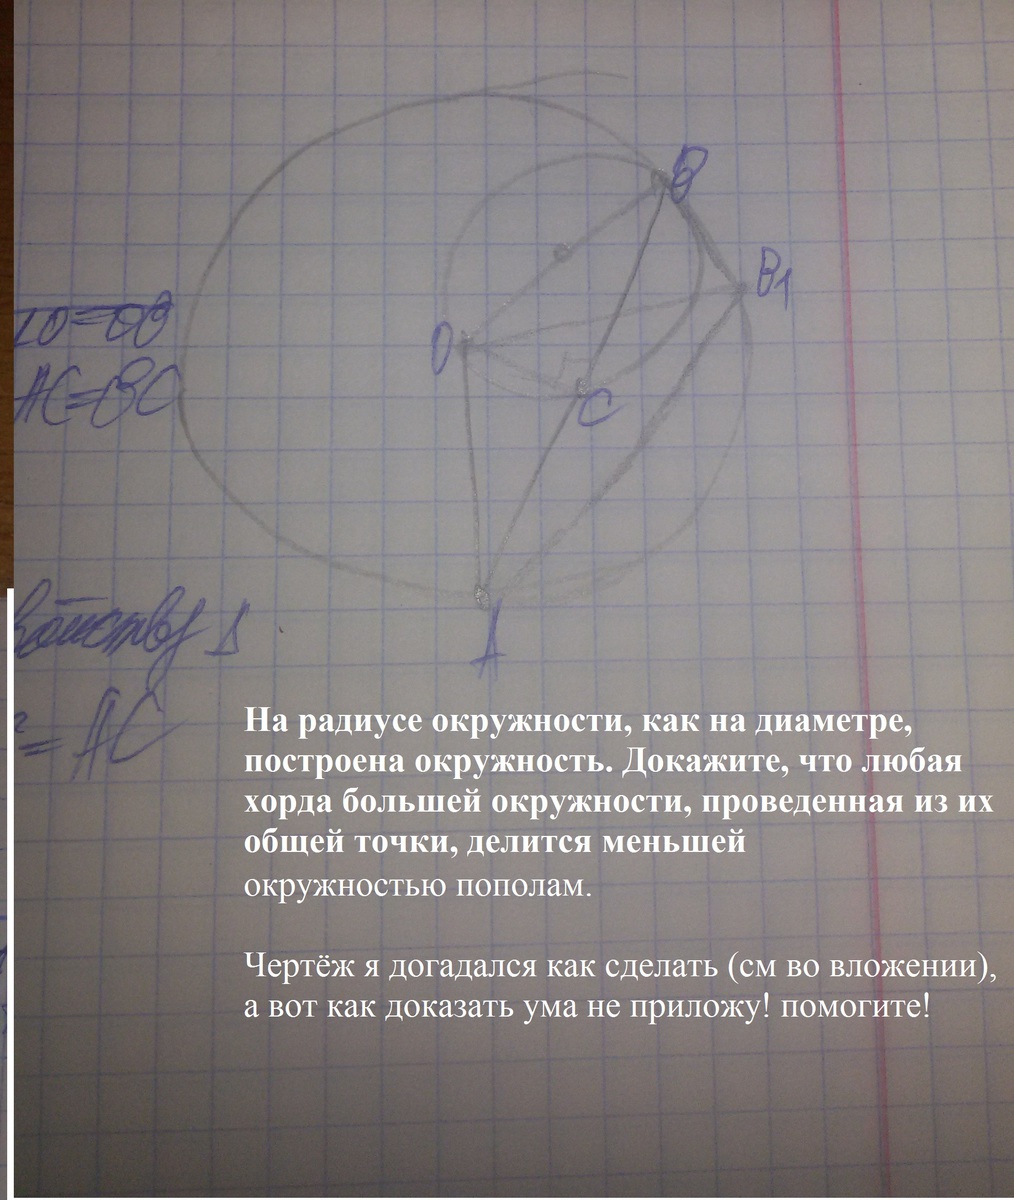 B
B1
O
AC=BC
C
A
= AC
На радиусе окружности, как на диаметре,
построена окружность. Докажите, что любая
хорда большей окружности, проведенная из их
общей точки, делится меньшей
окружностью пополам.
Чертёж я догадался как сделать (см во вложении),
а вот как доказать ума не приложу! помогите!